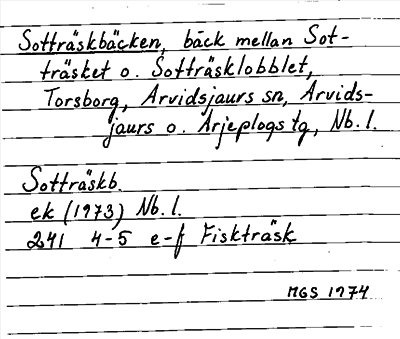 Sotträskbäcken, bäck mellan Sot-
träsket o. Sotträsklobblet,
Torsborg, Arvidsjaurs sn, Arvids-
jaurs o. Arjeplogs tg, Nb. l.
Sotträskb.
ek (1973) Nb. l.
241 4-5 e-f Fiskträsk
MGS 1974